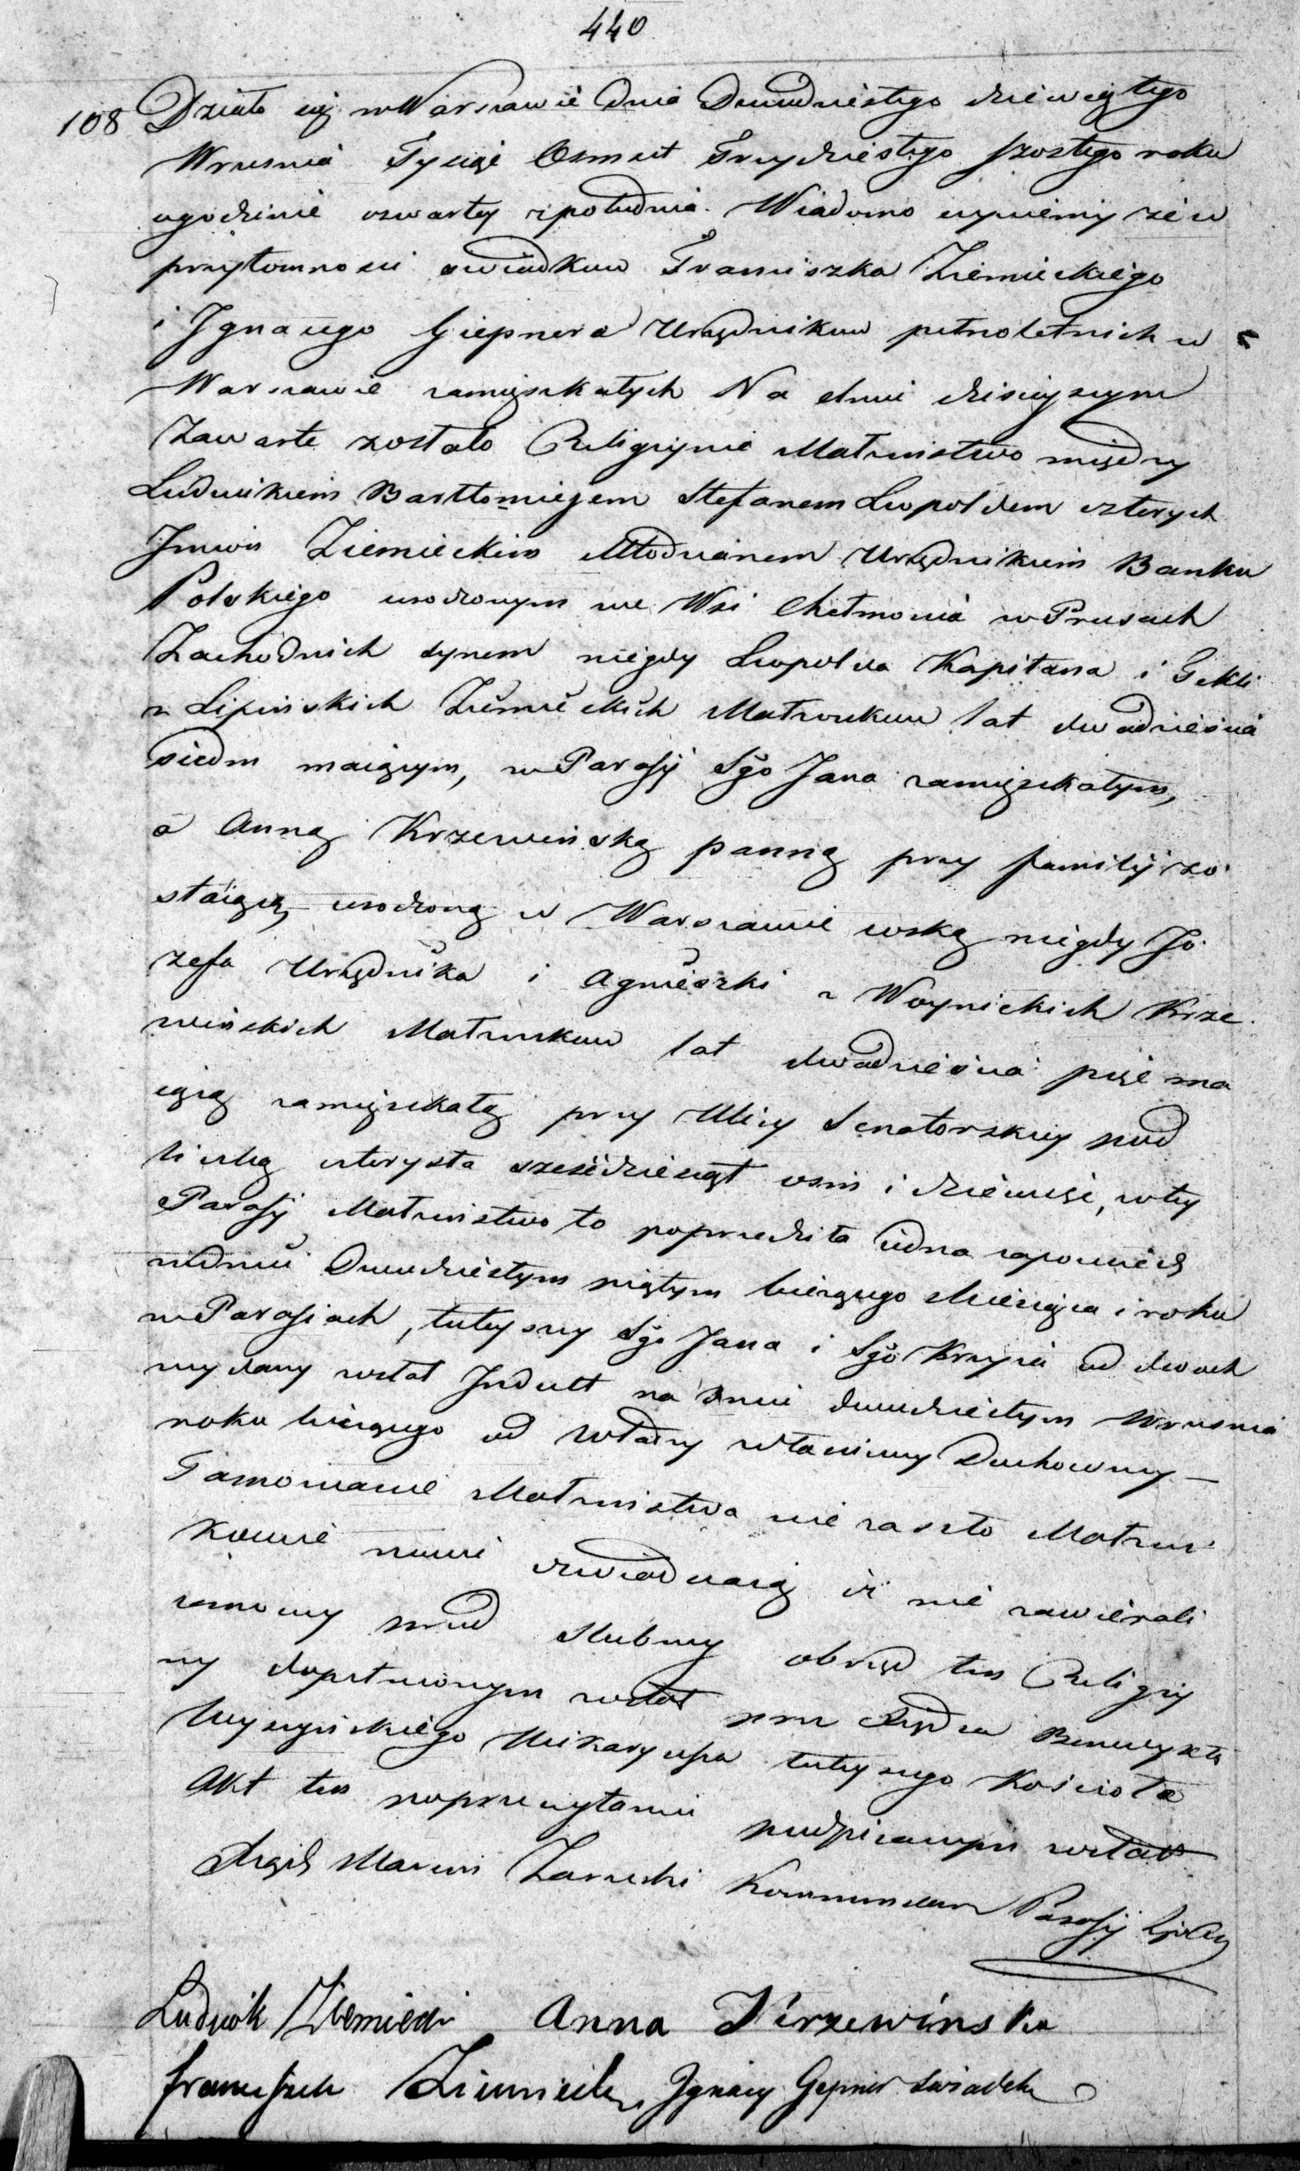 440
108 Działo się w Warszawie dnia Dwudziestego dziewiątego
Wrzesnia Tysiąc Osmset Trzydziestego szostego roku
o godzinie czwartey z południa. Wiadomo czyniemy że w
przytomnosci swiadkow Franciszka Ziemieckiego
i Ignacego Giepnera Urzędnikow pełnoletnich w
Warszawie zamięszkałych Na dniu dzisieyszym
Zawarte zostało Religiynie Małzenstwo między
Ludwikiem Bartłomiejem Stefanem Leopoldem czterych
Imion Ziemieckim Młodzianem Urzędnikiem Banku
Polskiego urodzonym we Wsi Chełmonia w Prusach
Zachodnich synem niegdy Leopolda Kapitana i Tekli
z Lipińskich Ziemieckich Małzonkow lat dwadziescia
siedm maiącym, w Parafij Sgo Jana zamięszkałym,
a Anną Krzewińską panną przy familij zo
staiącą, urodzoną w Warszawie corką niegdy Jo
zefa Urzędnika i Agnieszki z Woynickich Krze
wińskich Małzonkow lat dwadziescia pięć ma
iącą zamięszkałą przy Ulicy Senatorskiey pod
liczbą czterysta sześćdziesiąt osm i dziewięć, w tey
Parafij Małzenstwo to poprzedziła iedna zapowiedz
w dniu Dwudziestym piątym bieżącego Miesiąca i roku
w Parafiach, tuteyszey Sgo Jana i Sgo Krzyża od dwoch
wydany został Indult na dniu dwudziestym Wrzesnia
roku bieżącego od Władzy właściwey Duchowney —
Tamowanie Małzenstwa nie zaszło Małzon
kowie nowi oswiadczaią iż nie zawierali
umowy przed slubney obrząd ten Religiy
ny dopełnionym został przez Xiędza Benedykta
Wyszyńskiego Wikaryusza tuteyszego Kościoła
Akt ten po przeczytaniu podpisanym został
Xiądz Marcin Zarzecki Kommendarz Parafij
Ludwik Ziemiecki Anna Krzewinska
Franciszek Ziemiecki, Ignacy Gepner swiadek